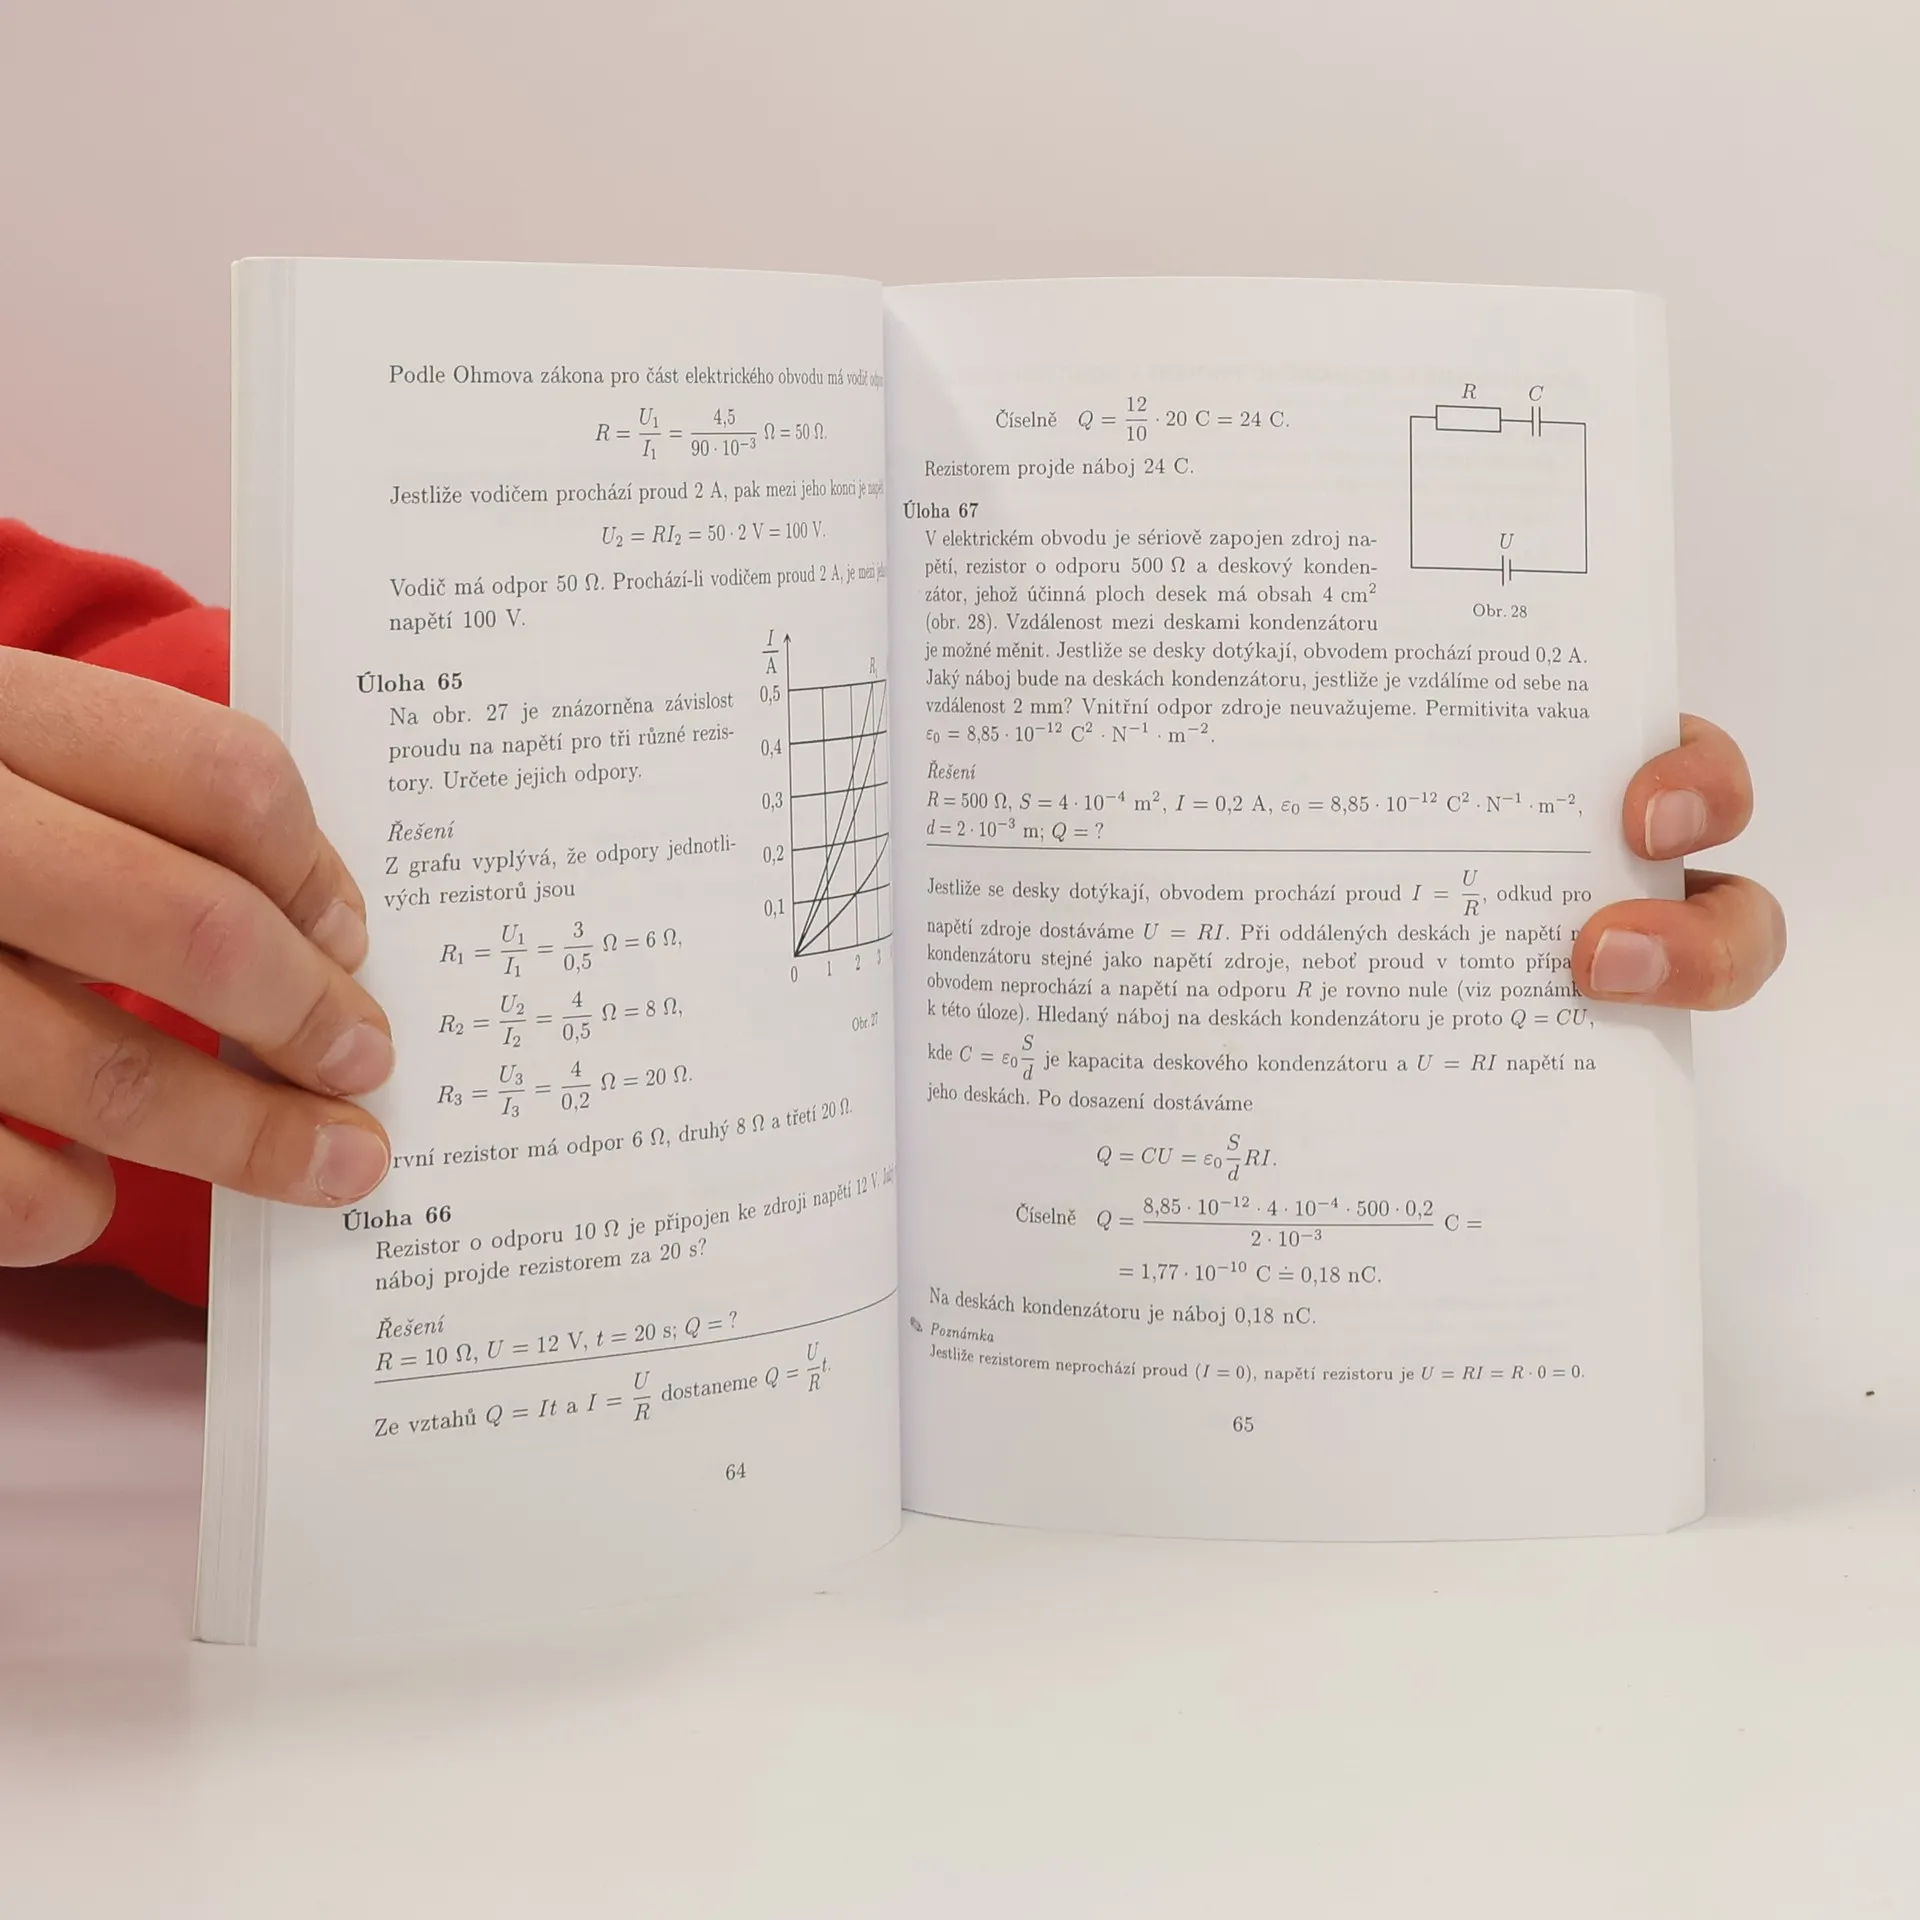 Podle Ohmova zákona pro část elektrického obvodu má vodič
R = U₁/I₁ = 4,5/(90 · 10⁻³) Ω = 50 Ω.
Jestliže vodičem prochází proud 2 A, pak mezi jeho konci je
U₂ = RI₂ = 50 · 2 V = 100 V.
Vodič má odpor 50 Ω. Prochází-li vodičem proud 2 A, je mezi
napětí 100 V.
Úloha 65
Na obr. 27 je znázorněna závislost
proudu na napětí pro tři různé rezis-
tory. Určete jejich odpory.
Řešení
Z grafu vyplývá, že odpory jednotli-
vých rezistorů jsou
R₁ = U₁/I₁ = 3/0,5 Ω = 6 Ω,
R₂ = U₂/I₂ = 4/0,5 Ω = 8 Ω,
R₃ = U₃/I₃ = 4/0,2 Ω = 20 Ω.
I/A
R₁
0,5
0,4
0,3
0,2
0,1
0 1 2 3
Obr. 27
rvní rezistor má odpor 6 Ω, druhý 8 Ω a třetí 20 Ω.
Úloha 66
Rezistor o odporu 10 Ω je připojen ke zdroji napětí 12 V.
náboj projde rezistorem za 20 s?
Řešení
R = 10 Ω, U = 12 V, t = 20 s; Q = ?
Ze vztahů Q = It a I = U/R dostaneme Q = U/R t.
64
Číselně Q = 12/10 · 20 C = 24 C.
Rezistorem projde náboj 24 C.
R C
U
Obr. 28
Úloha 67
V elektrickém obvodu je sériově zapojen zdroj na-
pětí, rezistor o odporu 500 Ω a deskový konden-
zátor, jehož účinná ploch desek má obsah 4 cm²
(obr. 28). Vzdálenost mezi deskami kondenzátoru
je možné měnit. Jestliže se desky dotýkají, obvodem prochází proud 0,2 A.
Jaký náboj bude na deskách kondenzátoru, jestliže je vzdálíme od sebe na
vzdálenost 2 mm? Vnitřní odpor zdroje neuvažujeme. Permitivita vakua
ε₀ = 8,85 · 10⁻¹² C² · N⁻¹ · m⁻².
Řešení
R = 500 Ω, S = 4 · 10⁻⁴ m², I = 0,2 A, ε₀ = 8,85 · 10⁻¹² C² · N⁻¹ · m⁻²,
d = 2 · 10⁻³ m; Q = ?
Jestliže se desky dotýkají, obvodem prochází proud I = U/R, odkud pro
napětí zdroje dostáváme U = RI. Při oddálených deskách je napětí
kondenzátoru stejné jako napětí zdroje, neboť proud v tomto přípa
obvodem neprochází a napětí na odporu R je rovno nule (viz poznámk
k této úloze). Hledaný náboj na deskách kondenzátoru je proto Q = CU,
kde C = ε₀ S/d je kapacita deskového kondenzátoru a U = RI napětí na
jeho deskách. Po dosazení dostáváme
Q = CU = ε₀ S/d RI.
Číselně Q = (8,85 · 10⁻¹² · 4 · 10⁻⁴ · 500 · 0,2)/(2 · 10⁻³) C =
= 1,77 · 10⁻¹⁰ C ≐ 0,18 nC.
Na deskách kondenzátoru je náboj 0,18 nC.
✎ Poznámka
Jestliže rezistorem neprochází proud (I = 0), napětí rezistoru je U = RI = R · 0 = 0.
65